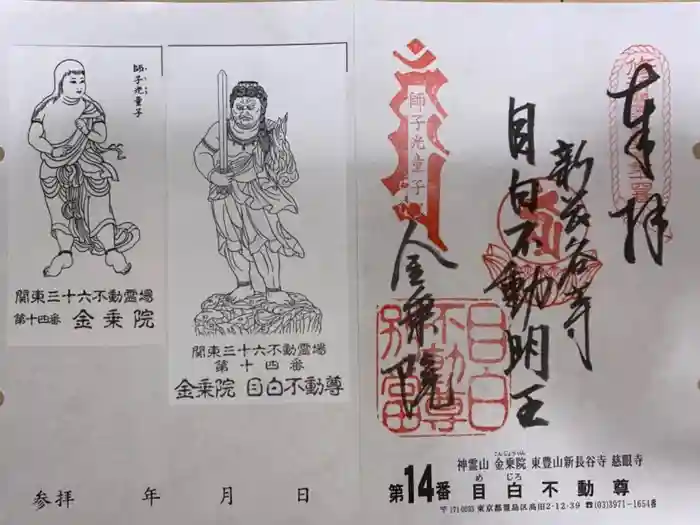 師子光童子
關東三十六不動霊場
第十四番 金乗院
關東三十六不動霊場
第十四番
金乗院 目白不動尊
参拝 年 月 日
奉拝
新長谷寺
目白不動明王
金乗院
師子光童子
目白
不動尊
別當
神霊山 金乗院 東豊山新長谷寺 慈眼寺
こんじょういん
第14番 目白不動尊
めじろ
〒171-0033 東京都豊島区高田2-12-39 ☎(03)3971-1654番